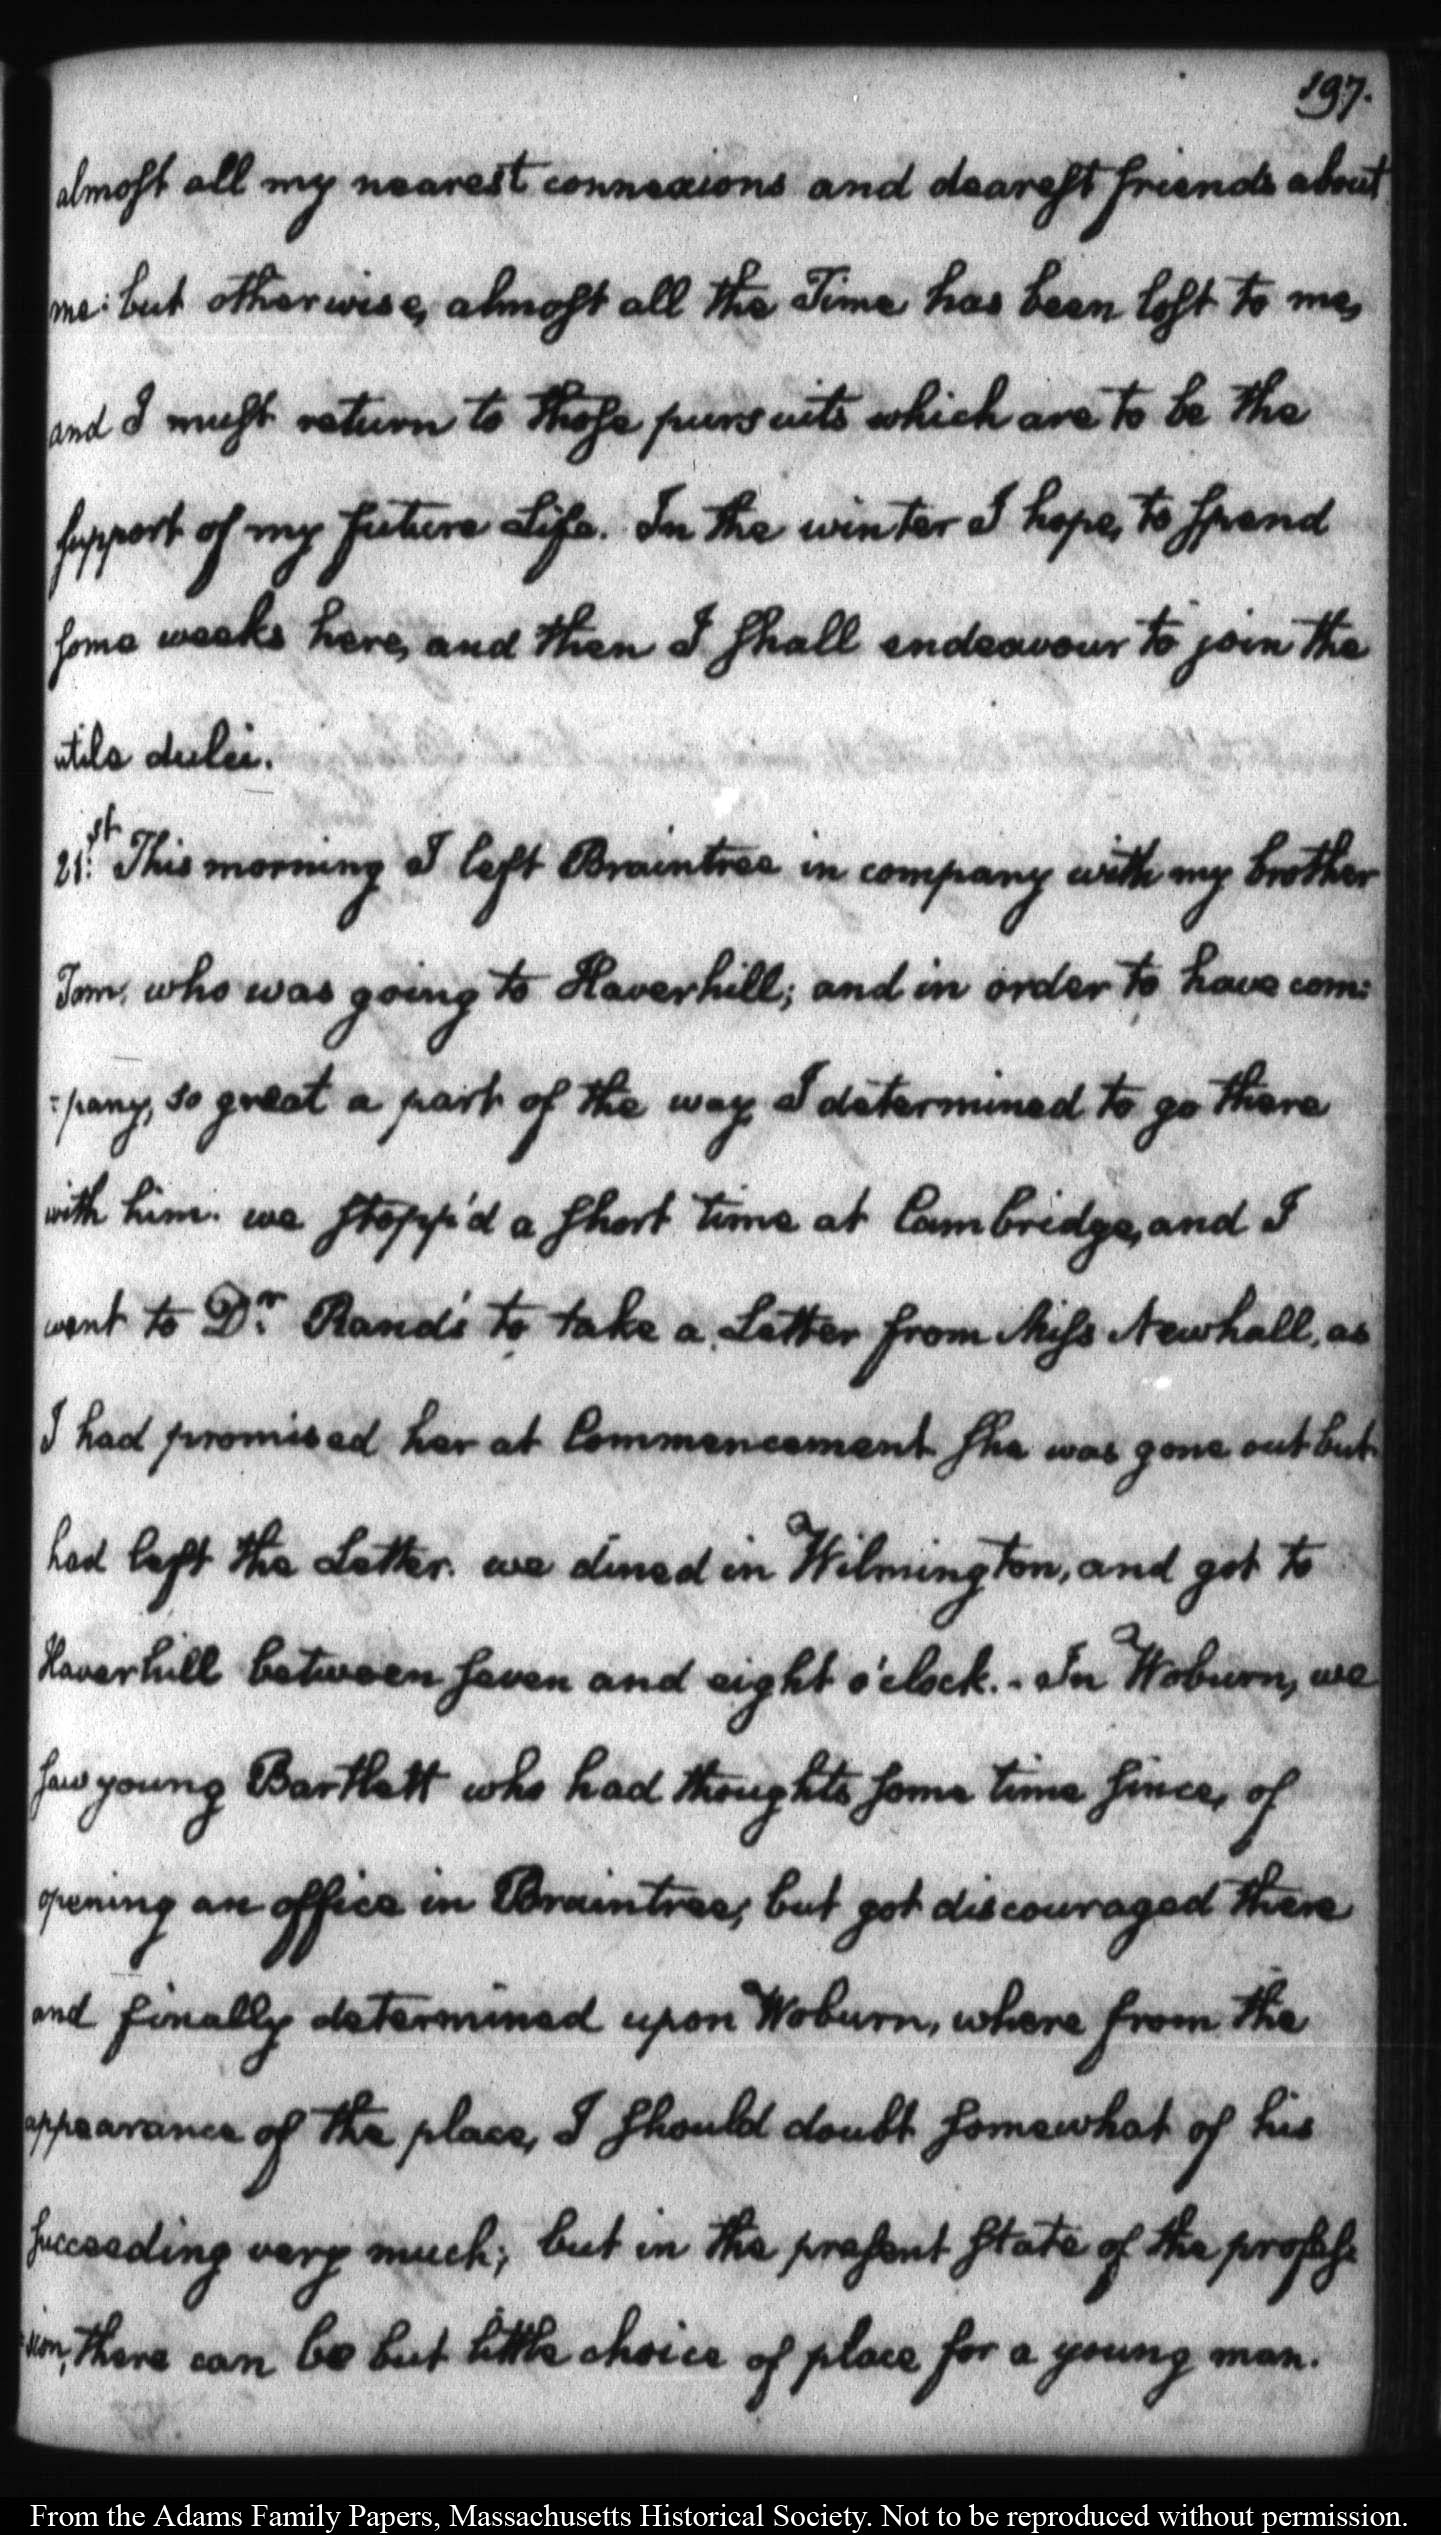 197.
almost all my nearest connexions and dearest friends about
me: but otherwise, almost all the Time has been lost to me,
and I must return to those pursuits which are to be the
support of my future Life. In the winter I hope, to spend
some weeks here, and then I shall endeavour to join the
utile dulci.
21:st This morning I left Braintree in company with my brother
Tom, who was going to Haverhill; and in order to have com:
:pany, so great a part of the way, I determined to go there
with him. we stopp'd a short time at Cambridge, and I
went to D:r Rand's to take a Letter from Miss Newhall, as
I had promised her at Commencement she was gone out but
had left the Letter. we dined in Wilmington, and got to
Haverhill between seven and eight o'clock. - In Woburn, we
saw young Bartlett who had thoughts some time since, of
opening an office in Braintree; but got discouraged there
and finally determined upon Woburn, where from the
appearance of the place, I should doubt somewhat of his
succeeding very much; but in the present state of the profes:
:sion, there can be but little choice of place for a young man.
From the Adams Family Papers, Massachusetts Historical Society. Not to be reproduced without permission.